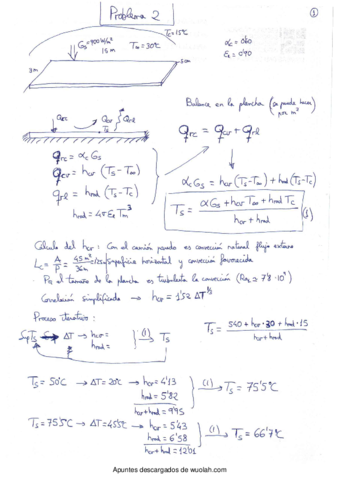 Problema 2
①
Tc=15ºC
Gs=900 W/m²
15m
T∞=30ºC
αc=0'60
εt=0'90
3m
Balance en la plancha (se puede hacer por m²)
qrc
qcv
qrl
Ts
qrc = qcv + qrl
qrc = αc Gs
qcv = hcv (Ts-T∞)
qrl = hrad (Ts-Tc)
hrad = 4σεTm³
αcGs = hcv (Ts-T∞) + hrad (Ts-Tc)
Ts = αGs + hcv T∞ + hrad Tc / hcv + hrad (1)
Cálculo del hcv: Con el camión parado es convección natural flujo externo
Lc = A/P = 45 m²/36m = 1'25m superficie horizontal y convección favorecida
Por el tamaño de la plancha es turbulenta la convección (RaL ≈ 7'8·10⁹)
Correlación simplificada → hcv = 1'52 ΔT^1/3
Proceso iterativo:
Sup Ts → ΔT → hcv= hrad= (1) → Ts
Ts = 540 + hcv·30 + hrad·15 / hcv + hrad
Ts = 50ºC → ΔT=20ºC → hcv = 4'13
hrad = 5'82
hcv+hrad = 9'95
(1) → Ts = 75'5ºC
Ts = 75'5ºC → ΔT=45'5ºC → hcv = 5'43
hrad = 6'58
hcv+hrad = 12'01
(1) → Ts = 66'7ºC
Apuntes descargados de wuolah.com